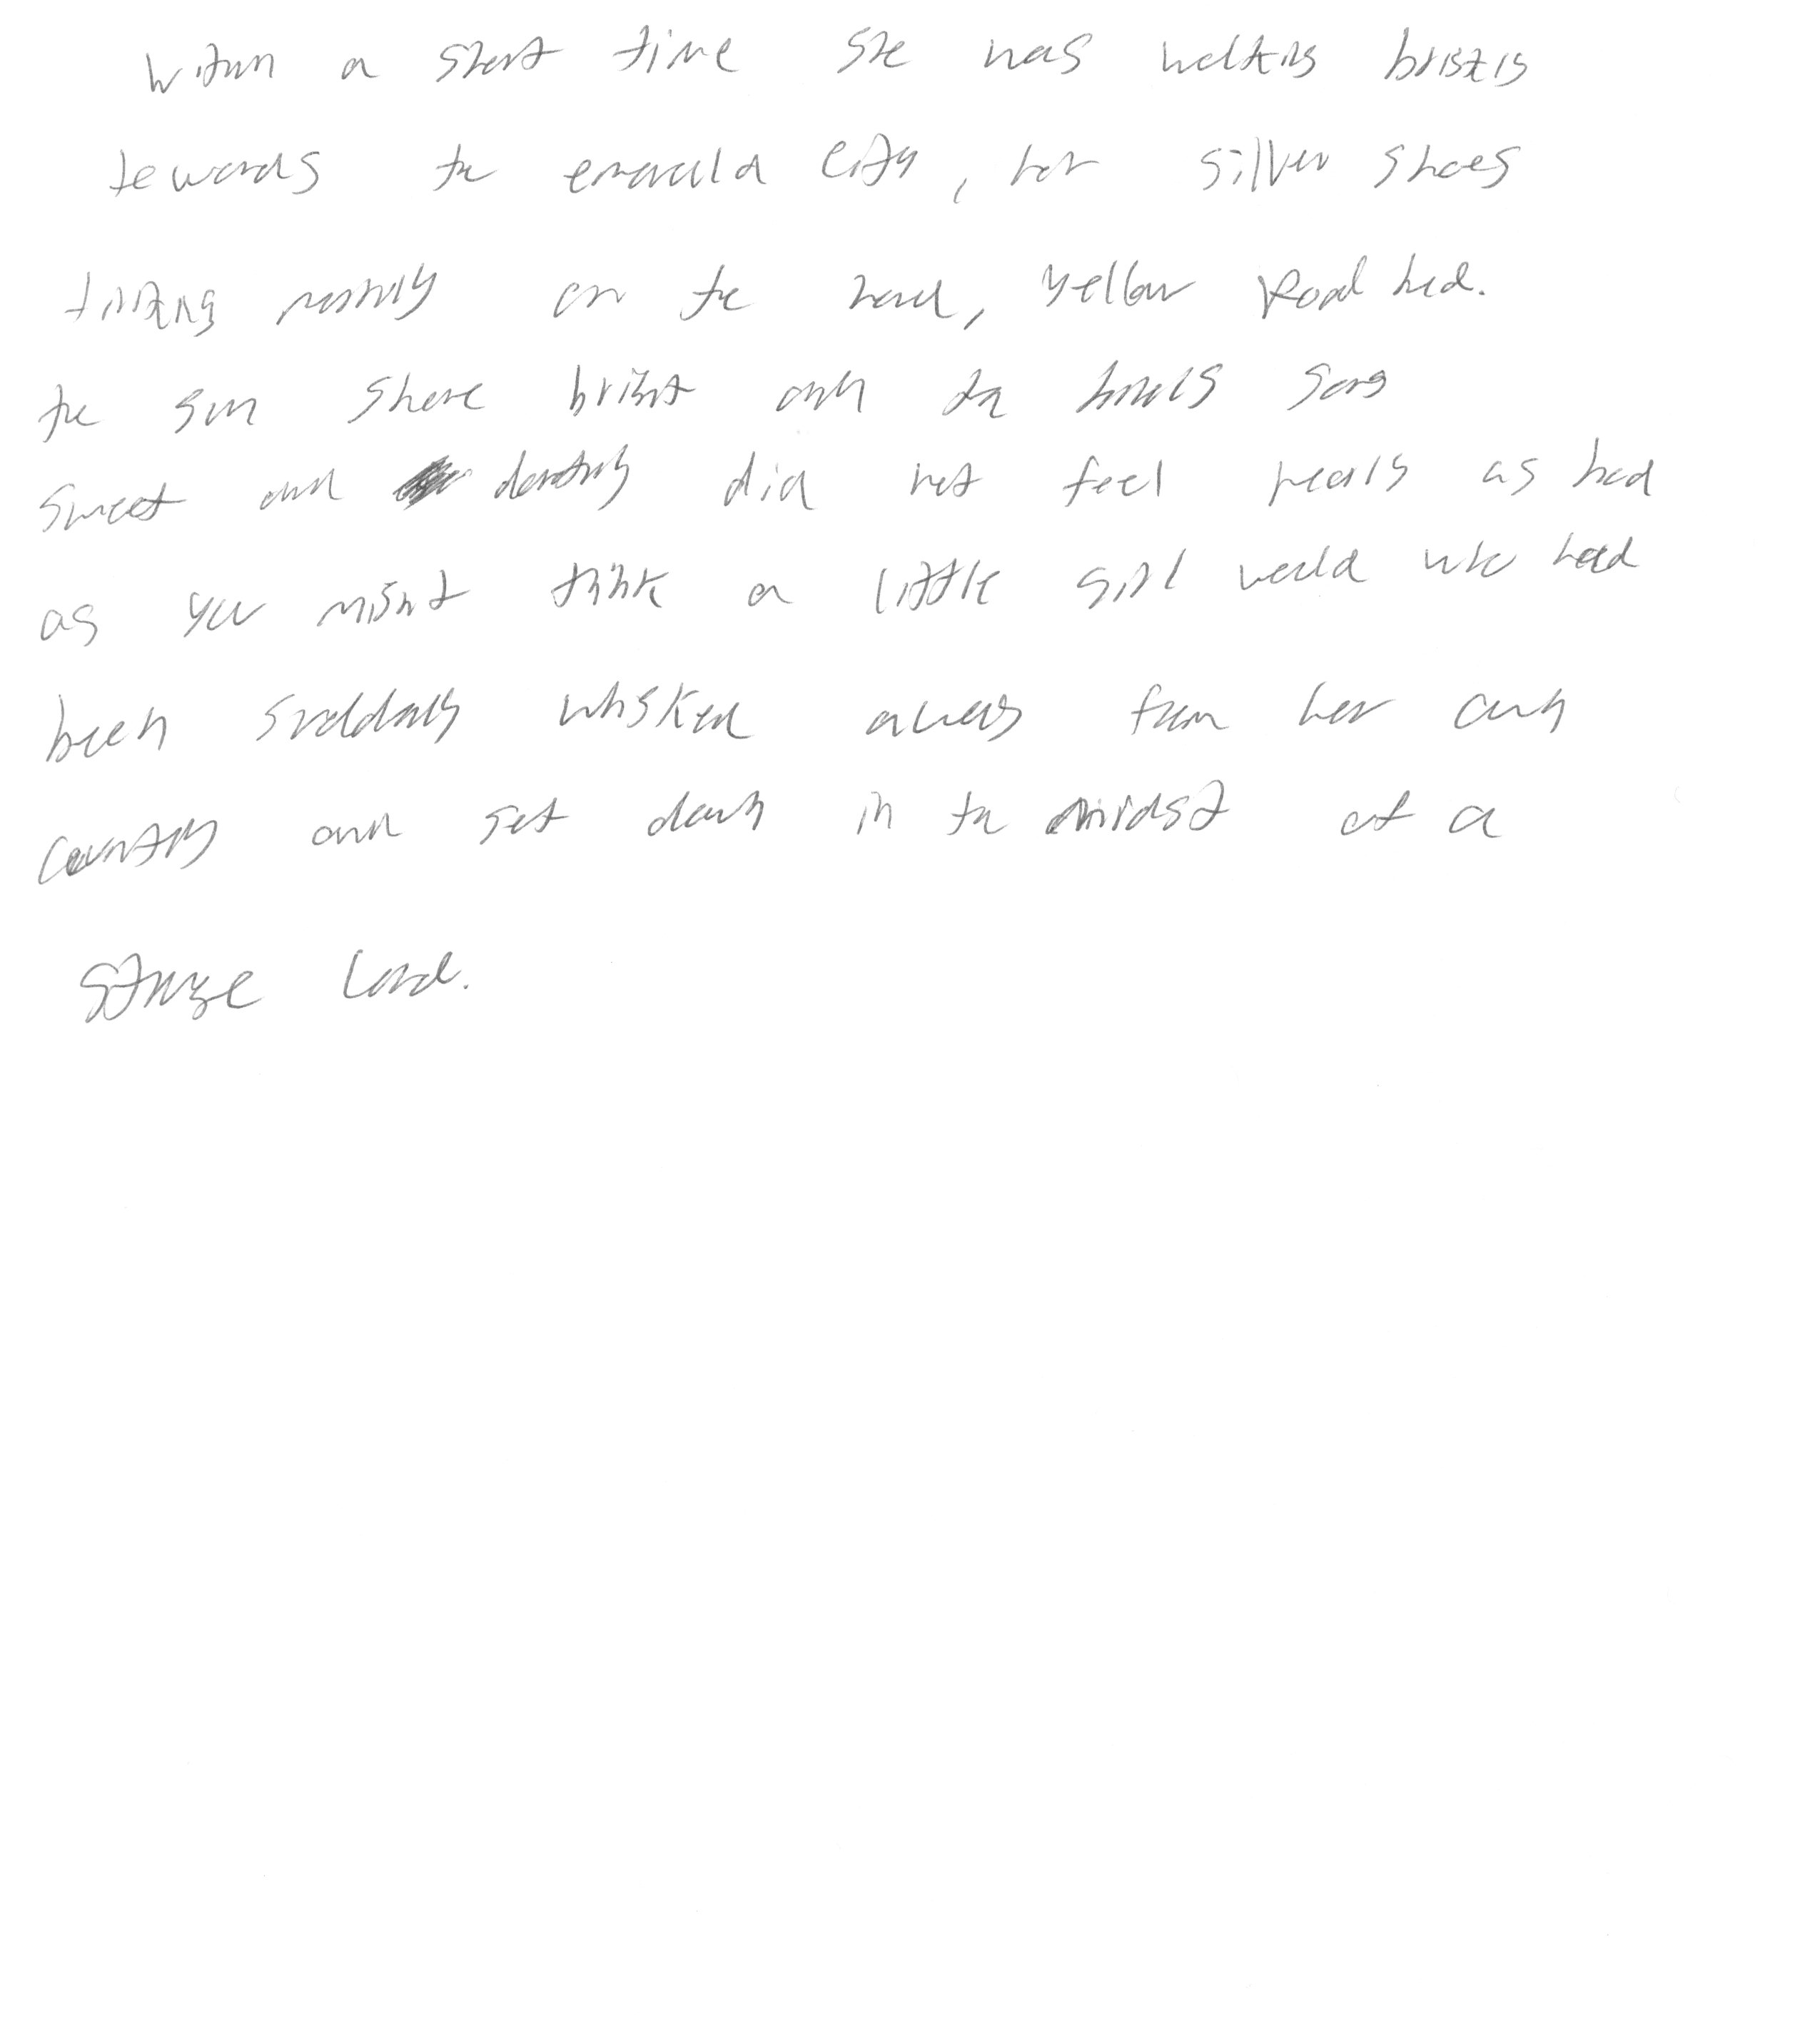 Within a short time she was walking briskly
towards the emerald city, her silver shoes
tinkling merrily on the hard, yellow Road bed.
the sun shone bright and the birds sang
sweet and dorothy did not feel nearly as bad
as you might think a little girl would who had
been suddenly whisked away from her own
country and set down in the midst of a
strange land.